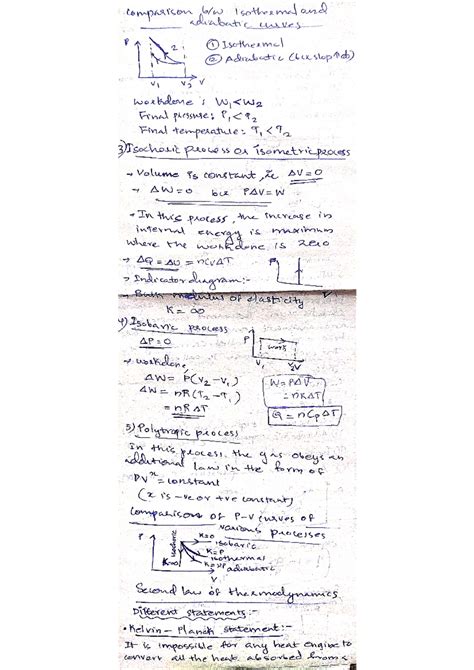 Comparison b/w Isothermal and
adiabatic curves
P
2
① Isothermal
② Adiabatic (bcz slop↑dt)
V₁ V₂ V
workdone: W₁<W₂
Final pressure: P₁<P₂
Final temperature: T₁<T₂
3) Isochoric process or isometric process
→ Volume is constant, ie ΔV=0
→ ΔW=0 bcz PΔV=W
• In this process, the increase in
internal energy is maximum
where the workdone is zero
→ ΔQ=ΔU = nCvΔT
P
→ Indicator diagram:-
→ Bulk modulus of elasticity
V
K=∞
4) Isobaric process
ΔP=0
P
work
V₁ V₂ V
→ workdone
ΔW= P(V₂-V₁)
ΔW = nR(T₂-T₁)
= nRΔT
W=PΔV
=nRΔT
Q = nCpΔT
5) Polytropic process
In this process, the gas obeys an
additional law in the form of
PVˣ=constant
(x is -ve or +ve constant)
Comparison of P-V curves of
various processes
P
isochoric
K=∞
K=0
isobaric
K=P
isothermal
K=γP
adiabatic
V
Second law of thermodynamics
Different statements:-
• Kelvin-Planck statement:-
It is impossible for any heat engine to
convert all the heat absorbed from a